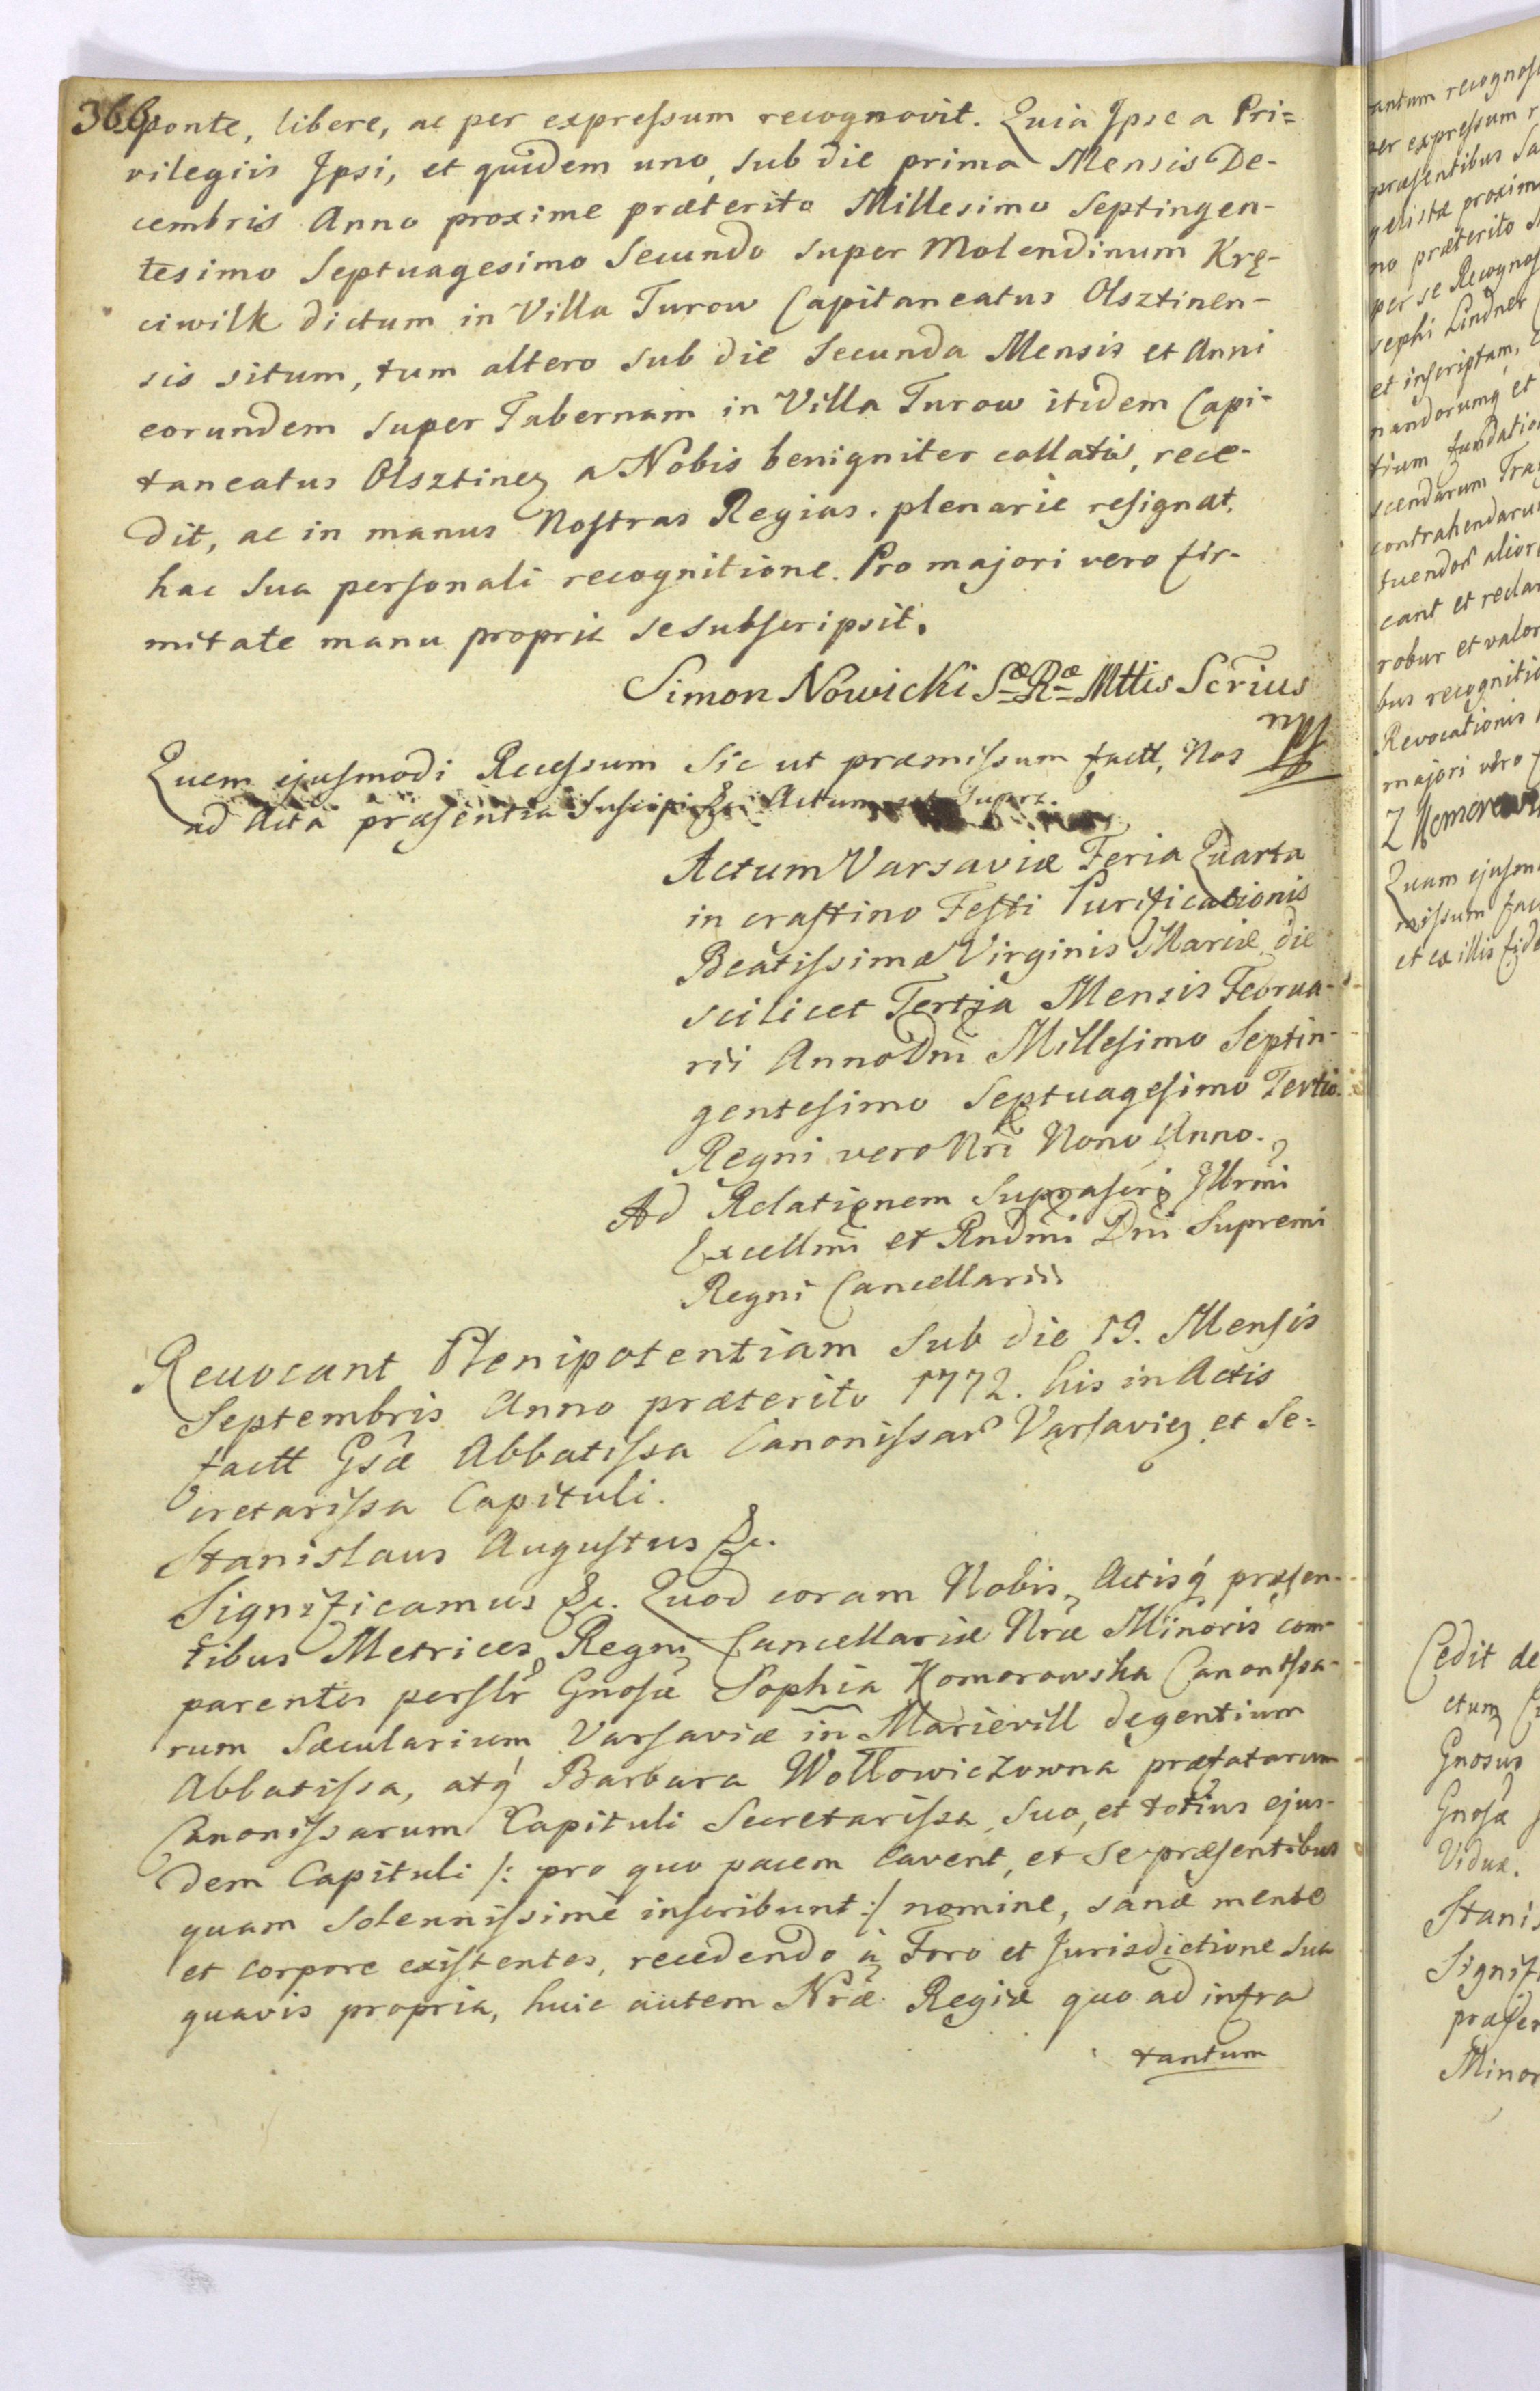 366
sponte, libere, ac per expreſsum recognovit. Quia Ipse a Pri=
vilegiis Ipsi, et quidem uno, sub die prima Mensis De-
cembris Anno proxime præterito Millesimo Septingen-
tesimo Septuagesimo Secundo super Molendinum Krę-
ciwilk dictum in Villa Turow Capitaneatus Olsztinen-
sis situm, tum altero sub die Secunda Mensis et Anni
eorundem super Tabernam in Villa Turow itidem Capi-
taneatus Olsztinen a Nobis benigniter collatis, rece-
dit, ac in manus Noſtras Regias. plenarie reſignat,
hac Sua perſonali recognitione. Pro majori vero fir-
mitate manu propria se subſcripsit.
Simon Nowicki Sæ Ræ Mttis Scrius
mp
Quem ejuſmodi Receſsum sic ut præmiſsum factt, Nos
ad Acta præſentia Suſcipi &c. Actum ut Supra.
Actum Varsaviæ Feria Quarta
in craſtino Feſti Purificationis
Beatiſsimæ Virginis Mariæ die
scilicet Tertia Mensis Februa-
rii Anno Dni Milleſimo Septin-
genteſimo Septuageſimo Tertio.
Regni vero Nri Nono Anno.
Ad Relationem Supraſcri Illrmi
Excellmi et Rndmi Dni Supremi
Regni Cancellarii
Revocant Plenipotentiam sub die 19. Menſis
Septembris Anno præterito 1772. his in Actis
factt Gsæ Abbatiſsa Canoniſsar Varſavien et Se=
cretariſsa Capituli.
Stanislaus Auguſtus &c.
Significamus &c. Quod coram Nobis, Actisq præſen-
tibus Metrices Regni Cancellariæ Nræ Minoris com-
parentes perslr Gnosæ Sophia Komorowska Canoniſsa-
rum Sæcularium Varſaviæ in Marievill degentium
Abbatiſsa, atq Barbara Wołłowiczowna præfatarum
Canoniſsarum Capituli Secretariſsa, suo, et totius ejus-
dem Capituli /: pro quo pacem cavent, et se præſentibus
quam solenniſsimè inſcribunt :/ nomine, sanæ mente
et corpore exiſtentes, recedendo à Foro et Jurisdictione sua
quavis propria, huic autem Nræ Regiæ quo ad infra
tantum
antum recognoſ
per expreſsum r
præſentibus
geliſtæ proxim
no præterito
per se Recognoſ
sephi Lindner
et inſcriptam,
nandorumq et
tium fundatio
scendarum Tra
contrahendaru
tuendor alior
cant et recla
robur et valor
bus recognitio
Revocationis
majori vero
Z Komorow
Quam ejuſm
miſsum fac
et ex illis fide
Cedit de
ctum
Gnosus
Gnoſæ
Viduæ.
Stanis
Signif
præſen
Minor